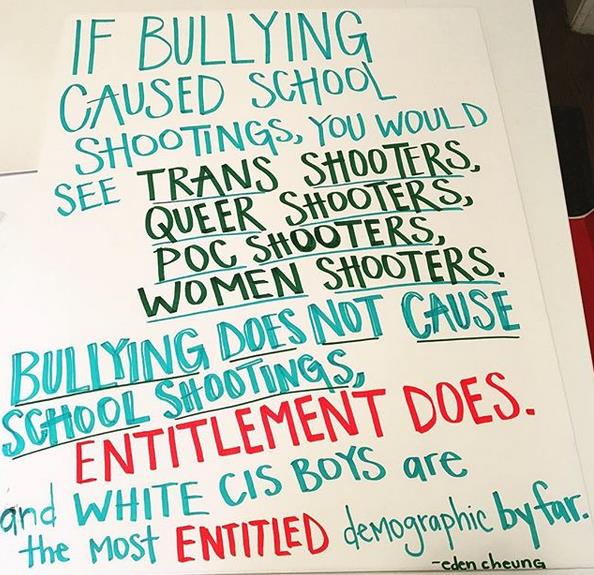 IF BULLYING
CAUSED SCHOOL
SHOOTINGS, YOU WOULD
SEE TRANS SHOOTERS,
QUEER SHOOTERS,
POC SHOOTERS,
WOMEN SHOOTERS.
BULLYING DOES NOT CAUSE
SCHOOL SHOOTINGS,
ENTITLEMENT DOES.
and WHITE CIS BOYS are
the MOST ENTITLED demographic by far.
-eden cheung